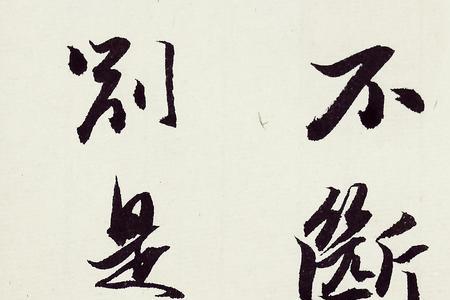 不斷
別是